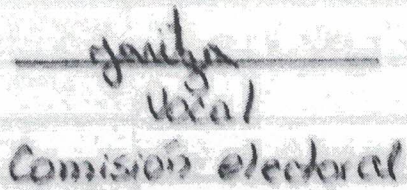 Vocal
Comisión electoral